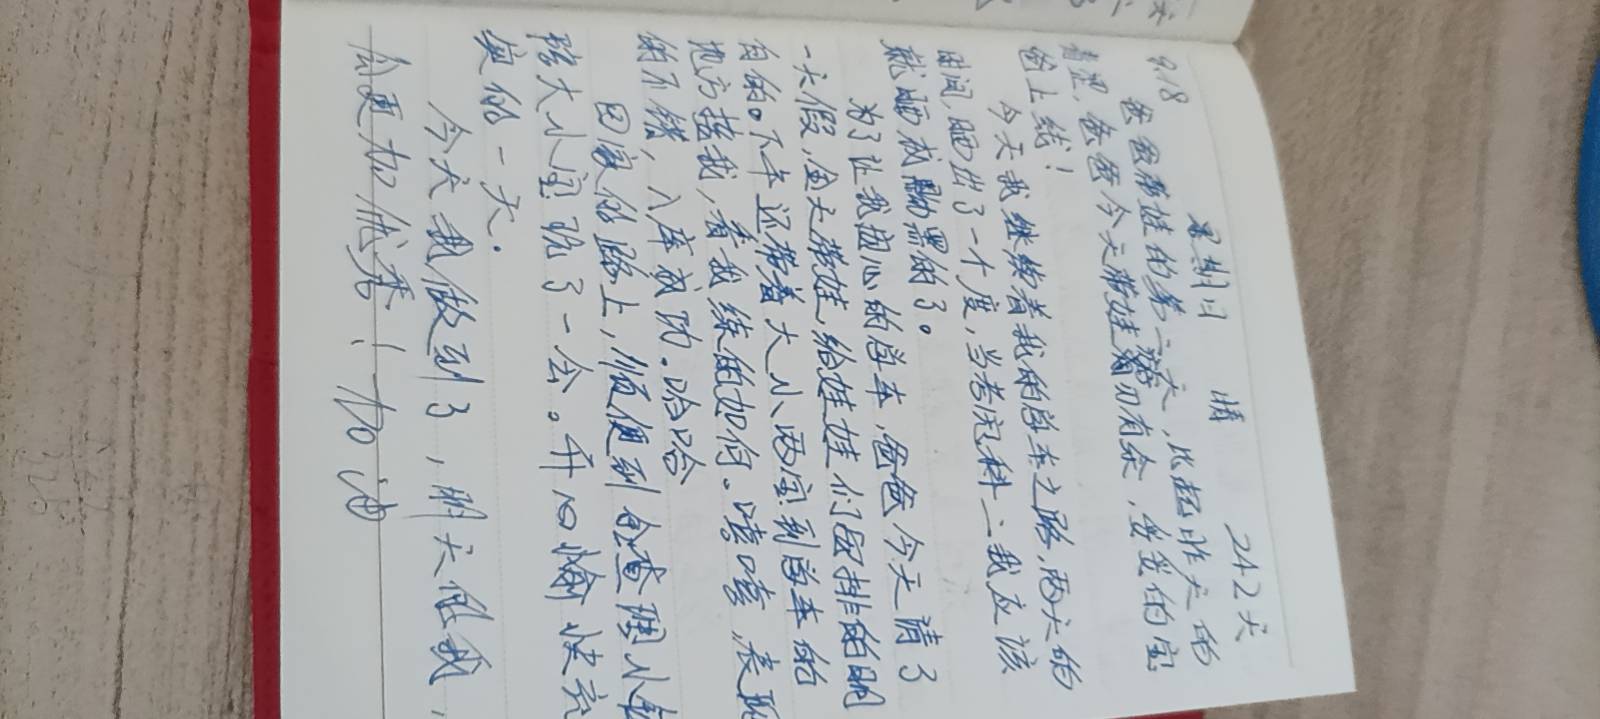 9.18 星期日 晴 242天
爸爸带娃的第二天，比起昨天的
着涩，爸爸今天带娃游刃有余，妥妥的宝
爸上线！
今天我继续着我的学车之路，两天的
时间，晒出了一个度，当考完科二我应该
就晒成黝黑的了。
为了让我安心的学车，爸爸今天请了
一天假，全天带娃，给娃娃们安排的明
白的。下午还带着大小两宝到学车的
地方接我，看我练的如何。嘻嘻，表现
的不错，入库成功。哈哈
回家的路上，顺便到仓
陪大小宝玩了一会。开心愉快充
实的一天.
今天我做到了，明天的我，
会更加优秀！加油